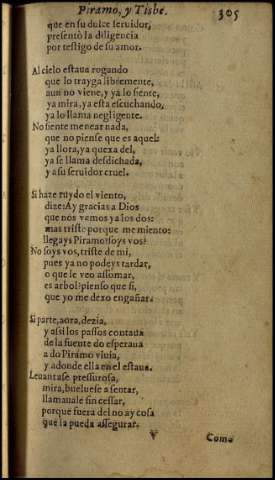 Piramo, y Tisbe. 305
que en su dulce seruidor,
presentò la diligencia
por testigo de su amor.
Al cielo estaua rogando
que lo trayga libremente,
aun no viene, y ya lo siente,
ya mira, ya esta escuchando,
ya lo llama negligente.
No siente menear nada,
que no piense que es aquel:
ya llora, ya quexa del,
ya se llama desdichada,
y a su seruidor cruel.
Si haze ruydo el viento,
dize: Ay gracias a Dios
que nos vemos ya los dos:
mas triste porque me miento:
llegays Piramo? soys vos?
No soys vos, triste de mi,
pues ya no podeys tardar,
o que le veo assomar,
es arbol? pienso que si,
que yo me dexo engañar.
Si parte, aora, dezia,
y assi los passos contaua
de la fuente do esperaua
a do Piramo viuia,
y adonde ella en el estaua.
Leuantase pressurosa,
mira, bueluese a sentar,
llamauale sin cessar,
porque fuera del no ay cosa
que la pueda assegurar.
V Como